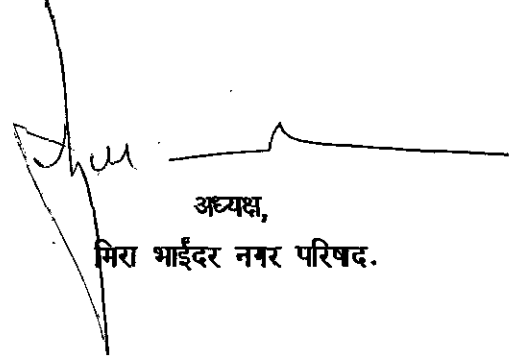 अध्यक्ष,
मिरा भाईंदर नगर परिषद.